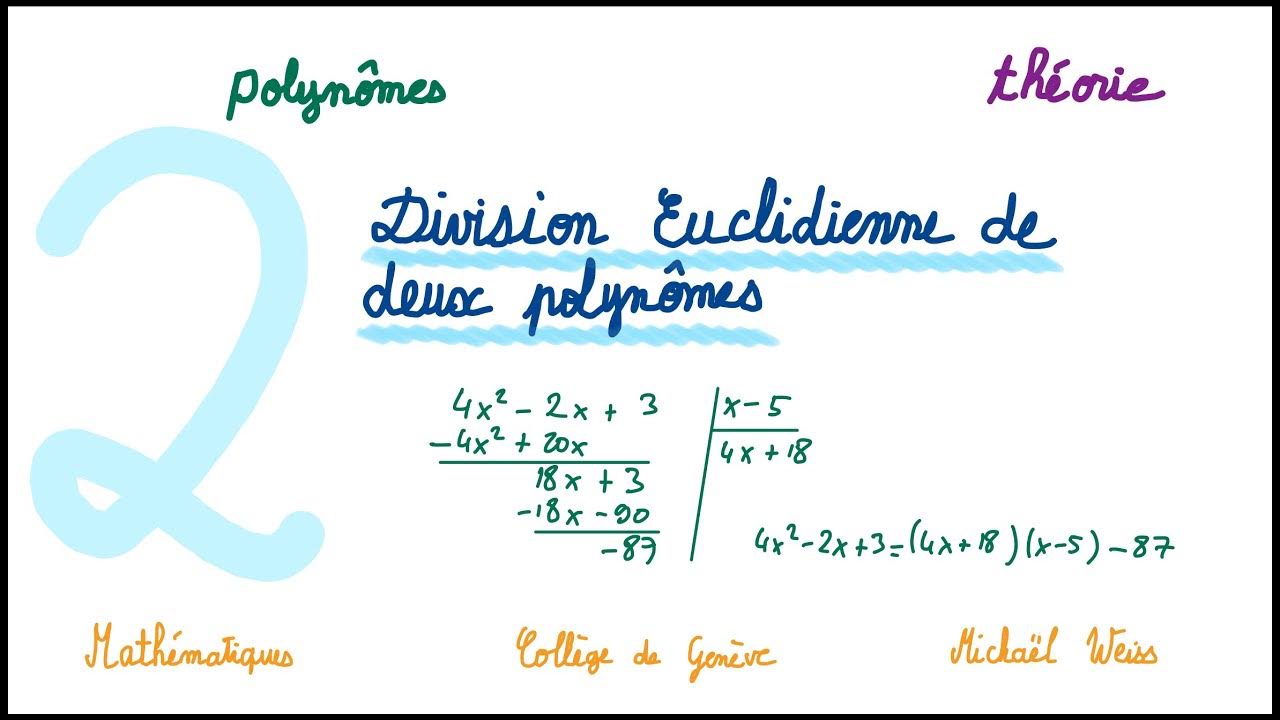 polynômes
théorie
2
Division Euclidienne de
deux polynômes
4x² - 2x + 3 | x - 5
-4x² + 20x | 4x + 18
18x + 3
-18x - 90
-87
4x² - 2x + 3 = (4x + 18)(x - 5) - 87
Mathématiques
Collège de Genève
Mickaël Weiss